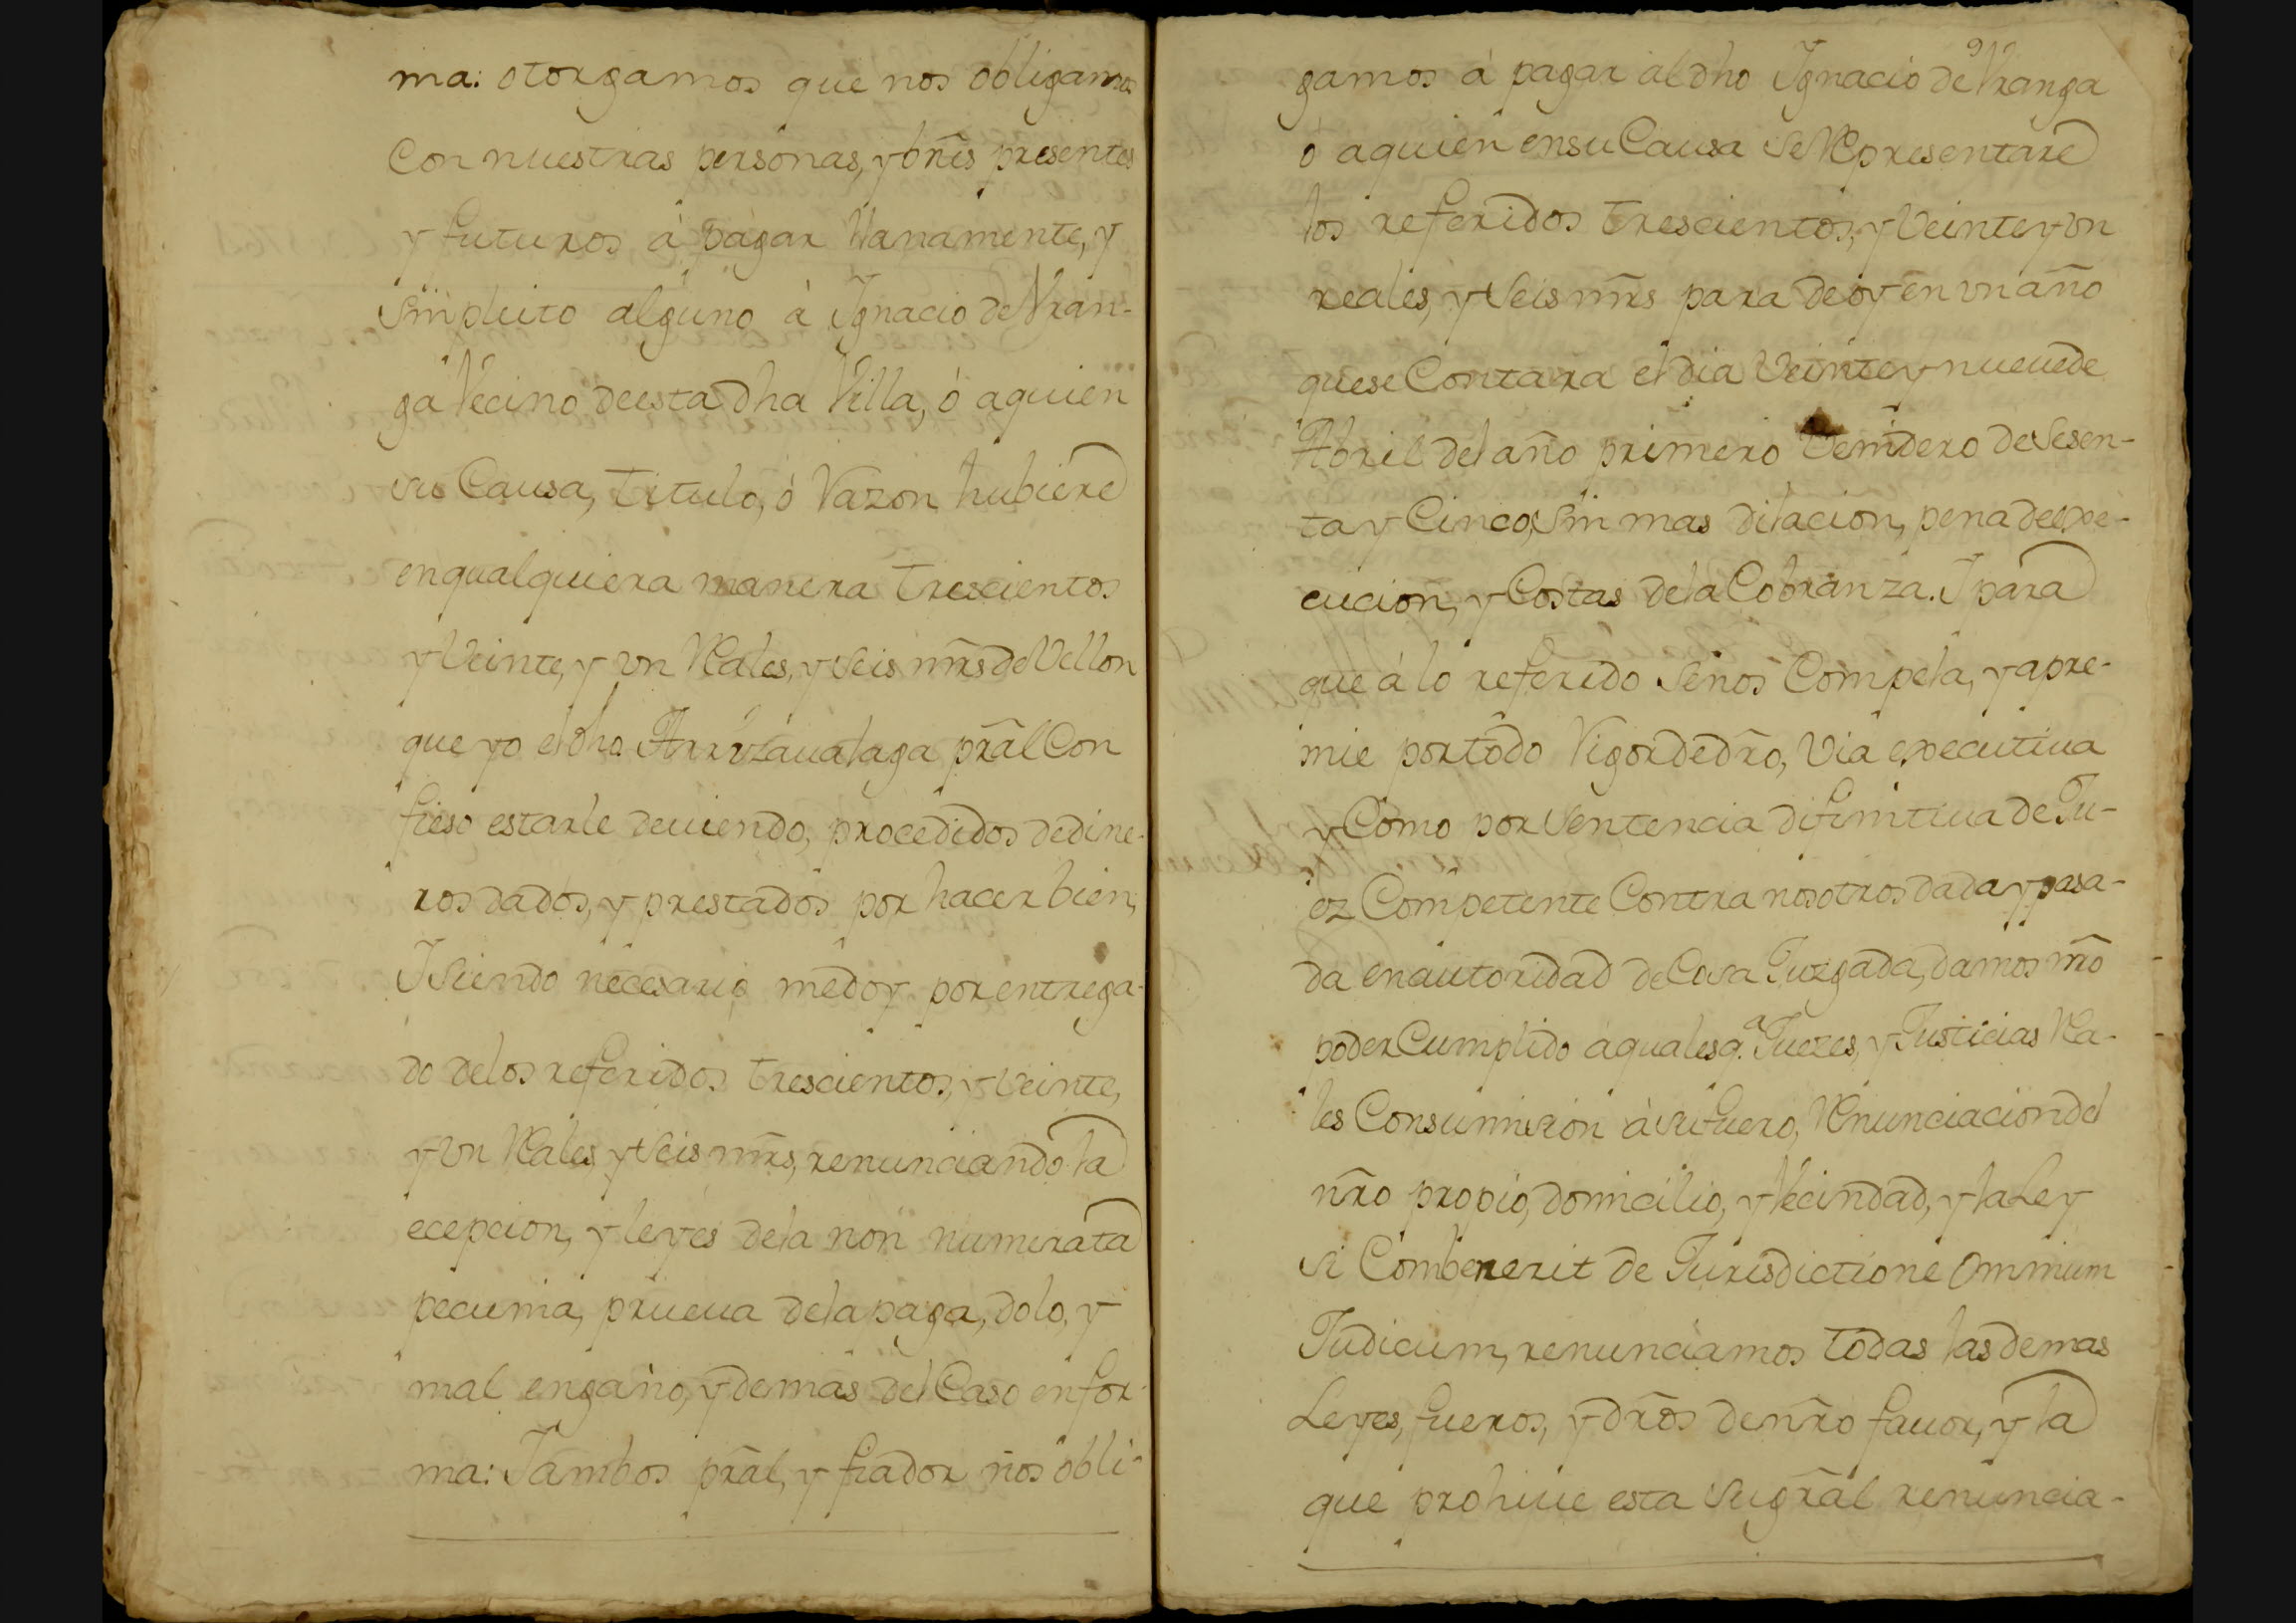 ma: otorgamos que nos obligamos
Con nuestras personas, y bñes presentes
y futuros à pagar llanamente, y
sin pleito alguno à Ygnacio de Vran-
ga Vecino de esta dha Villa, ó a quien
su Causa, titulo, ó Razon hubiere
en qualquiera manera trescientos
y Veinte, y vn Reales, y seis mrs de Vellon
que yo el dho Arrizaualaga pral Con
fieso estarle deuiendo, procedidos de dine-
ros dados, y prestados por hacer bien,
Y siendo necesario me doy por entrega-
do de los referidos trescientos, y Veinte,
y vn Reales, y seis mrs, renunciando la
ecepcion, y leyes de la non numerata
pecunia, prueua de la paga, dolo, y
mal engaño, y demas del Caso en for-
ma: Y ambos pral, y fiador nos obli-
9
gamos à pagar al dho Ygnacio de Vranga
ò a quien en su Causa se Representare
los referidos trescientos, y Veinte y vn
reales, y seis mrs para de oy en vn año
que se Contara el dia Veinte y nueue de
Abril del año primero Venidero de sesen-
ta y Cinco, sin mas dilacion, pena de exe-
cucion, y Costas de la Cobranza. Y para
que à lo referido se nos Compela, y apre-
mie por todo Rigor de dro, Via executiua
y Como por sentencia difinitiua de Ju-
ez Competente Contra nosotros dada y pasa-
da en autoridad de Cosa Juzgada, damos nro
poder Cumplido a quales q.a Juezes, y Justicias Rea-
les Con sumision à su fuero, Renunciacion del
nro propio, domicilio, y Vecindad, y la Ley
si Combenerit de Jurisdictione Omnium
Judicum, renunciamos todas las demas
Leyes, fueros, y dros de nro fauor, y la
que prohiue esta su gral renuncia-